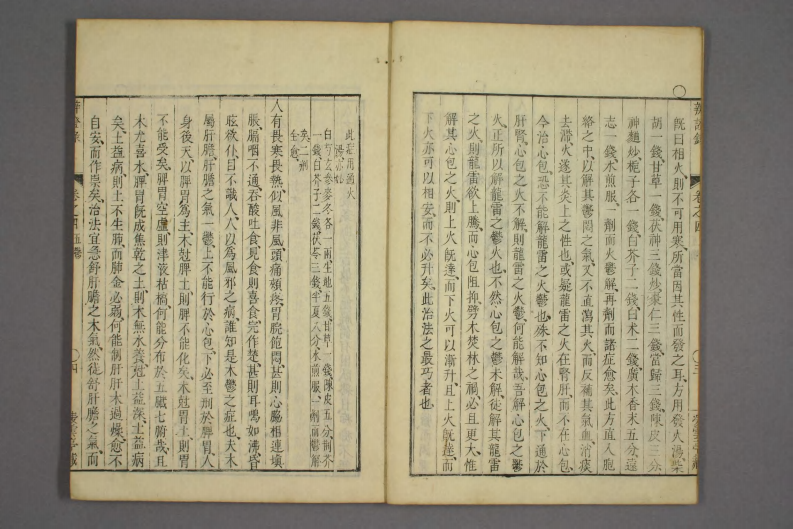 既曰相火則不可用寒所當因其性而發之耳方用發火湯柴
胡一錢甘草一錢茯神三錢炒棗仁三錢當歸三錢陳皮三分
神麯炒梔子各一錢白芥子二錢白朮二錢廣木香末五分遠
志一錢水煎服一劑而火鬱解再劑而諸症愈矣此方直入胞
絡之中以解其鬱悶之氣又不直瀉其火而反補其氣血消痰
去滯火遂其炎上之性也或疑龍雷之火在腎肝而不在心包
今治心包恐不能解龍雷之火鬱也殊不知心包之火下通於
肝腎心包之火不解則龍雷之火鬱何能解哉吾解心包之鬱
火正所以解龍雷之鬱火也不然心包之鬱未解徒解其龍雷
之火則龍雷欲上騰而心包阻抑劈木焚林之禍必且更大惟
解其心包之火則上火既達而下火可以漸升且上火既達而
下火亦可以相安而不必升矣此治法之最巧者也
此症用
白芍玄參麥冬各一兩生地五錢甘草一錢陳皮五分荊芥
一錢白芥子二錢茯苓三錢半夏八分水煎服一劑而鬱解
矣二劑
全愈
人有畏寒畏熱似風非風頭痛頰疼胃脘飽悶甚則心脇相連填
脹膈咽不通吞酸吐食見食則喜食完作楚甚則耳鳴如沸昏
眩欲仆目不識人人以為風邪之病誰知是木鬱之症也夫木
屬肝膽肝膽之氣一鬱上不能行於心包下必至刑於脾胃人
身後天以脾胃為主木尅脾土則脾不能化矣木尅胃土則胃
不能受矣脾胃空虛則津液枯槁何能分布於五臟七腑哉且
木尤喜水脾胃既成焦乾之土則木無水養尅土益深土益病
矣土益病則土不生肺而肺金必弱何能制肝肝木過燥愈不
自安而作祟矣治法宜急舒肝膽之木氣然徒舒肝膽之氣而
卷之四五鬱
四